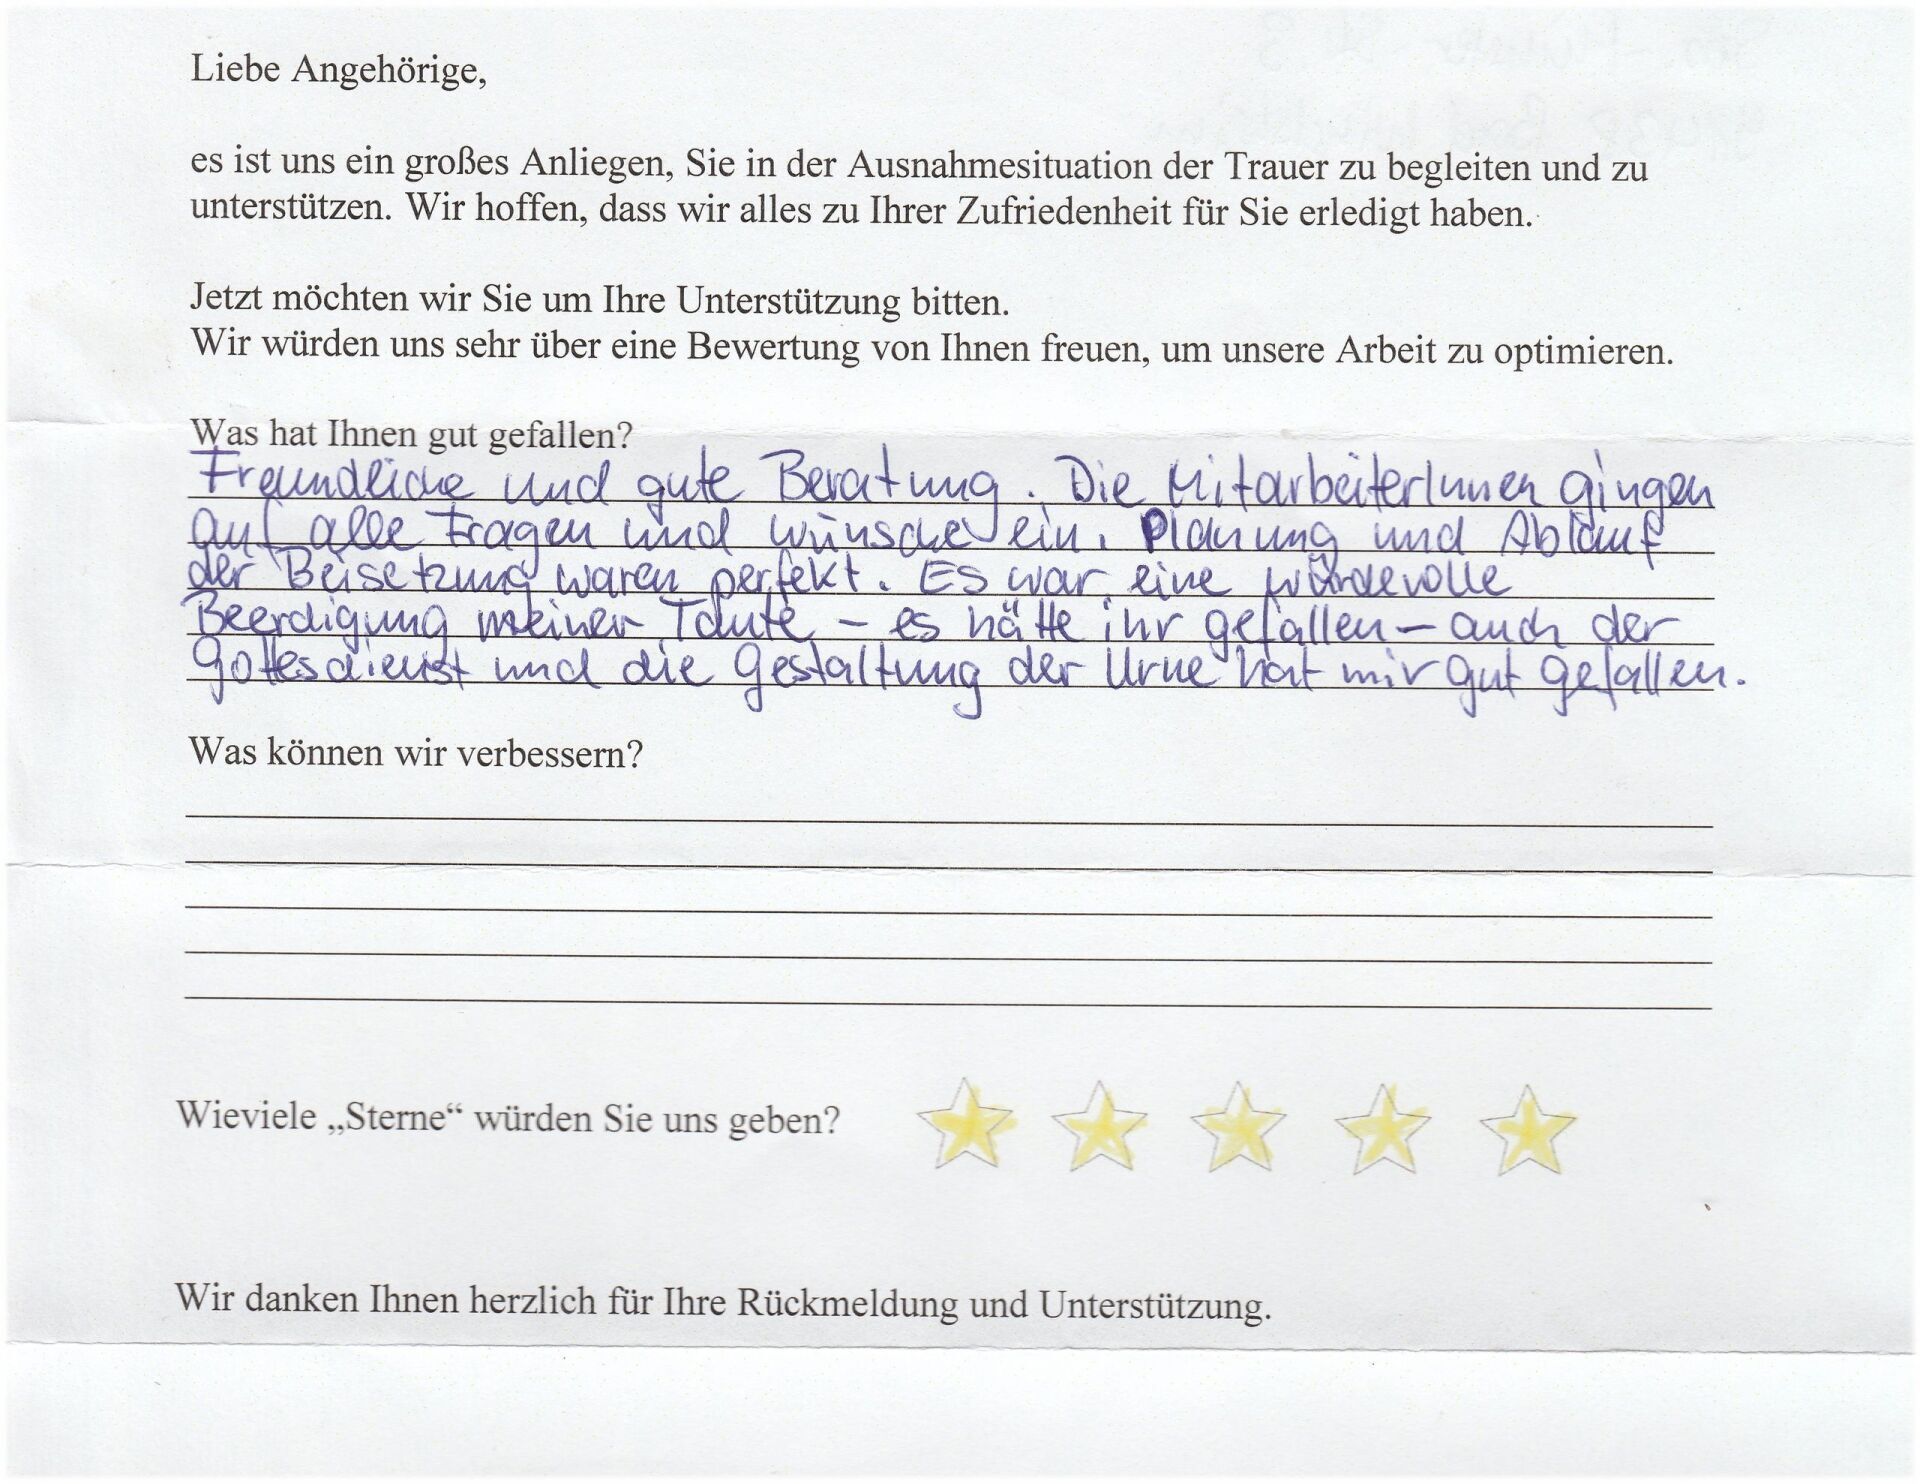 Liebe Angehörige,
es ist uns ein großes Anliegen, Sie in der Ausnahmesituation der Trauer zu begleiten und zu
unterstützen. Wir hoffen, dass wir alles zu Ihrer Zufriedenheit für Sie erledigt haben.
Jetzt möchten wir Sie um Ihre Unterstützung bitten.
Wir würden uns sehr über eine Bewertung von Ihnen freuen, um unsere Arbeit zu optimieren.
Was hat Ihnen gut gefallen?
Freundliche und gute Beratung. Die MitarbeiterInnen gingen
auf alle Fragen und Wünsche ein. Planung und Ablauf
der Beisetzung waren perfekt. Es war eine würdevolle
Beerdigung meiner Tante – es hätte ihr gefallen – auch der
Gottesdienst und die Gestaltung der Urne hat mir gut gefallen.
Was können wir verbessern?
Wieviele „Sterne“ würden Sie uns geben?
Wir danken Ihnen herzlich für Ihre Rückmeldung und Unterstützung.